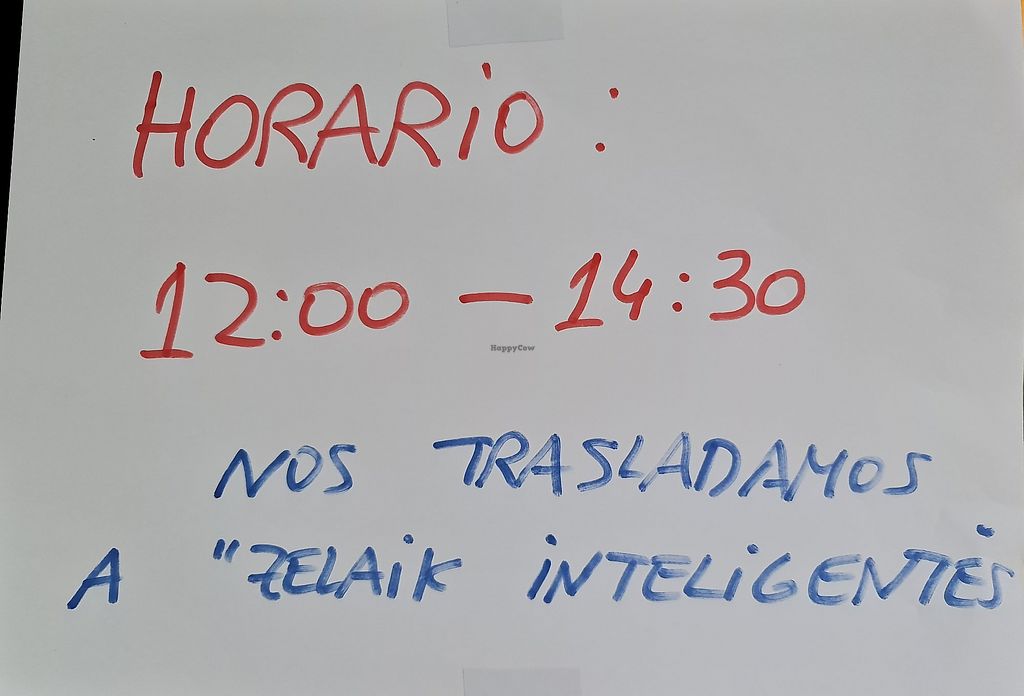 HORARiO :
12:00 – 14:30
HappyCow
NOS TRASLADAMOS
A "ZELAiK iNTELiGENTES